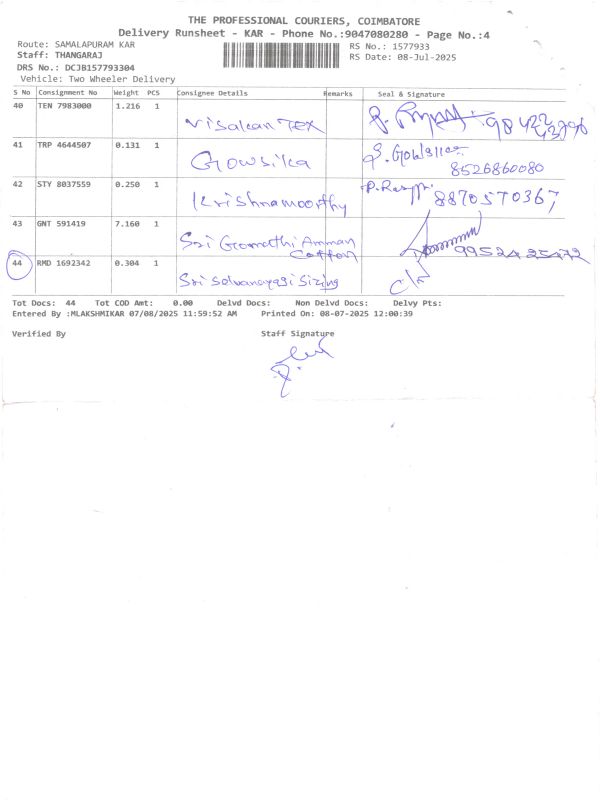 THE PROFESSIONAL COURIERS, COIMBATORE
Delivery Runsheet - KAR - Phone No.:9047080280 - Page No.:4
Route: SAMALAPURAM KAR RS No.: 1577933
Staff: THANGARAJ RS Date: 08-Jul-2025
DRS No.: DCJB157793304
Vehicle: Two Wheeler Delivery
S No Consignment No Weight PCS Consignee Details Remarks Seal & Signature
40 TEN 7983000 1.216 1
Visakan Tex
41 TRP 4644507 0.131 1
Gowsika 8526860080
42 STY 8037559 0.250 1
Krishnamoorthy 8870570367
43 GNT 591419 7.160 1
Sri Gomathi Amman
Cotton 9952425472
44 RMD 1692342 0.304 1
Sri Selvanayagi Sizing
Tot Docs: 44 Tot COD Amt: 0.00 Delvd Docs: Non Delvd Docs: Delvy Pts:
Entered By :MLAKSHMIKAR 07/08/2025 11:59:52 AM Printed On: 08-07-2025 12:00:39
Verified By Staff Signature